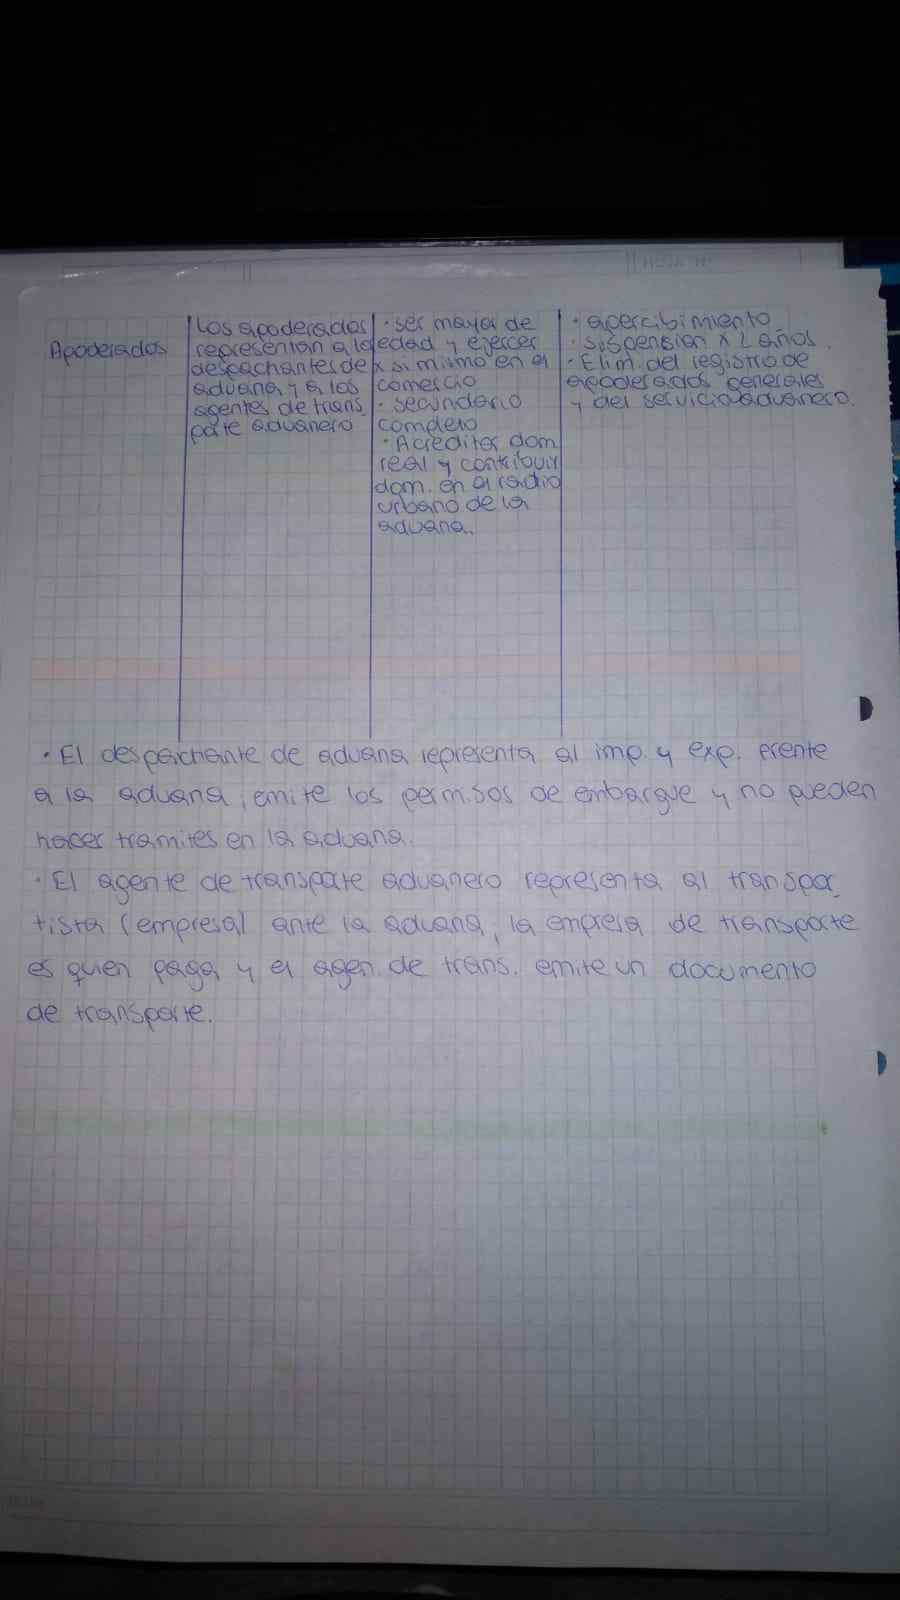 Apoderados
Los apoderados
representan a los
despachantes de
aduana y a los
agentes de trans_
porte aduanero
· ser mayor de
edad y ejercer
x si mismo en el
comercio
· secundario
completo
· Acreditar dom.
real y contribuir
dom. en el radio
urbano de la
aduana.
· apercibimiento
· suspensión x 2 años.
· Elim. del registro de
apoderados generales
y del servicio aduanero.
· El despachante de aduana representa al imp. y exp. frente
a la aduana, emite los permisos de embarque y no pueden
hacer tramites en la aduana.
· El agente de transpate aduanero representa al transpor_
tista (empresa) ante la aduana, la empresa de transporte
es quien paga y el agen. de trans. emite un documento
de transporte.